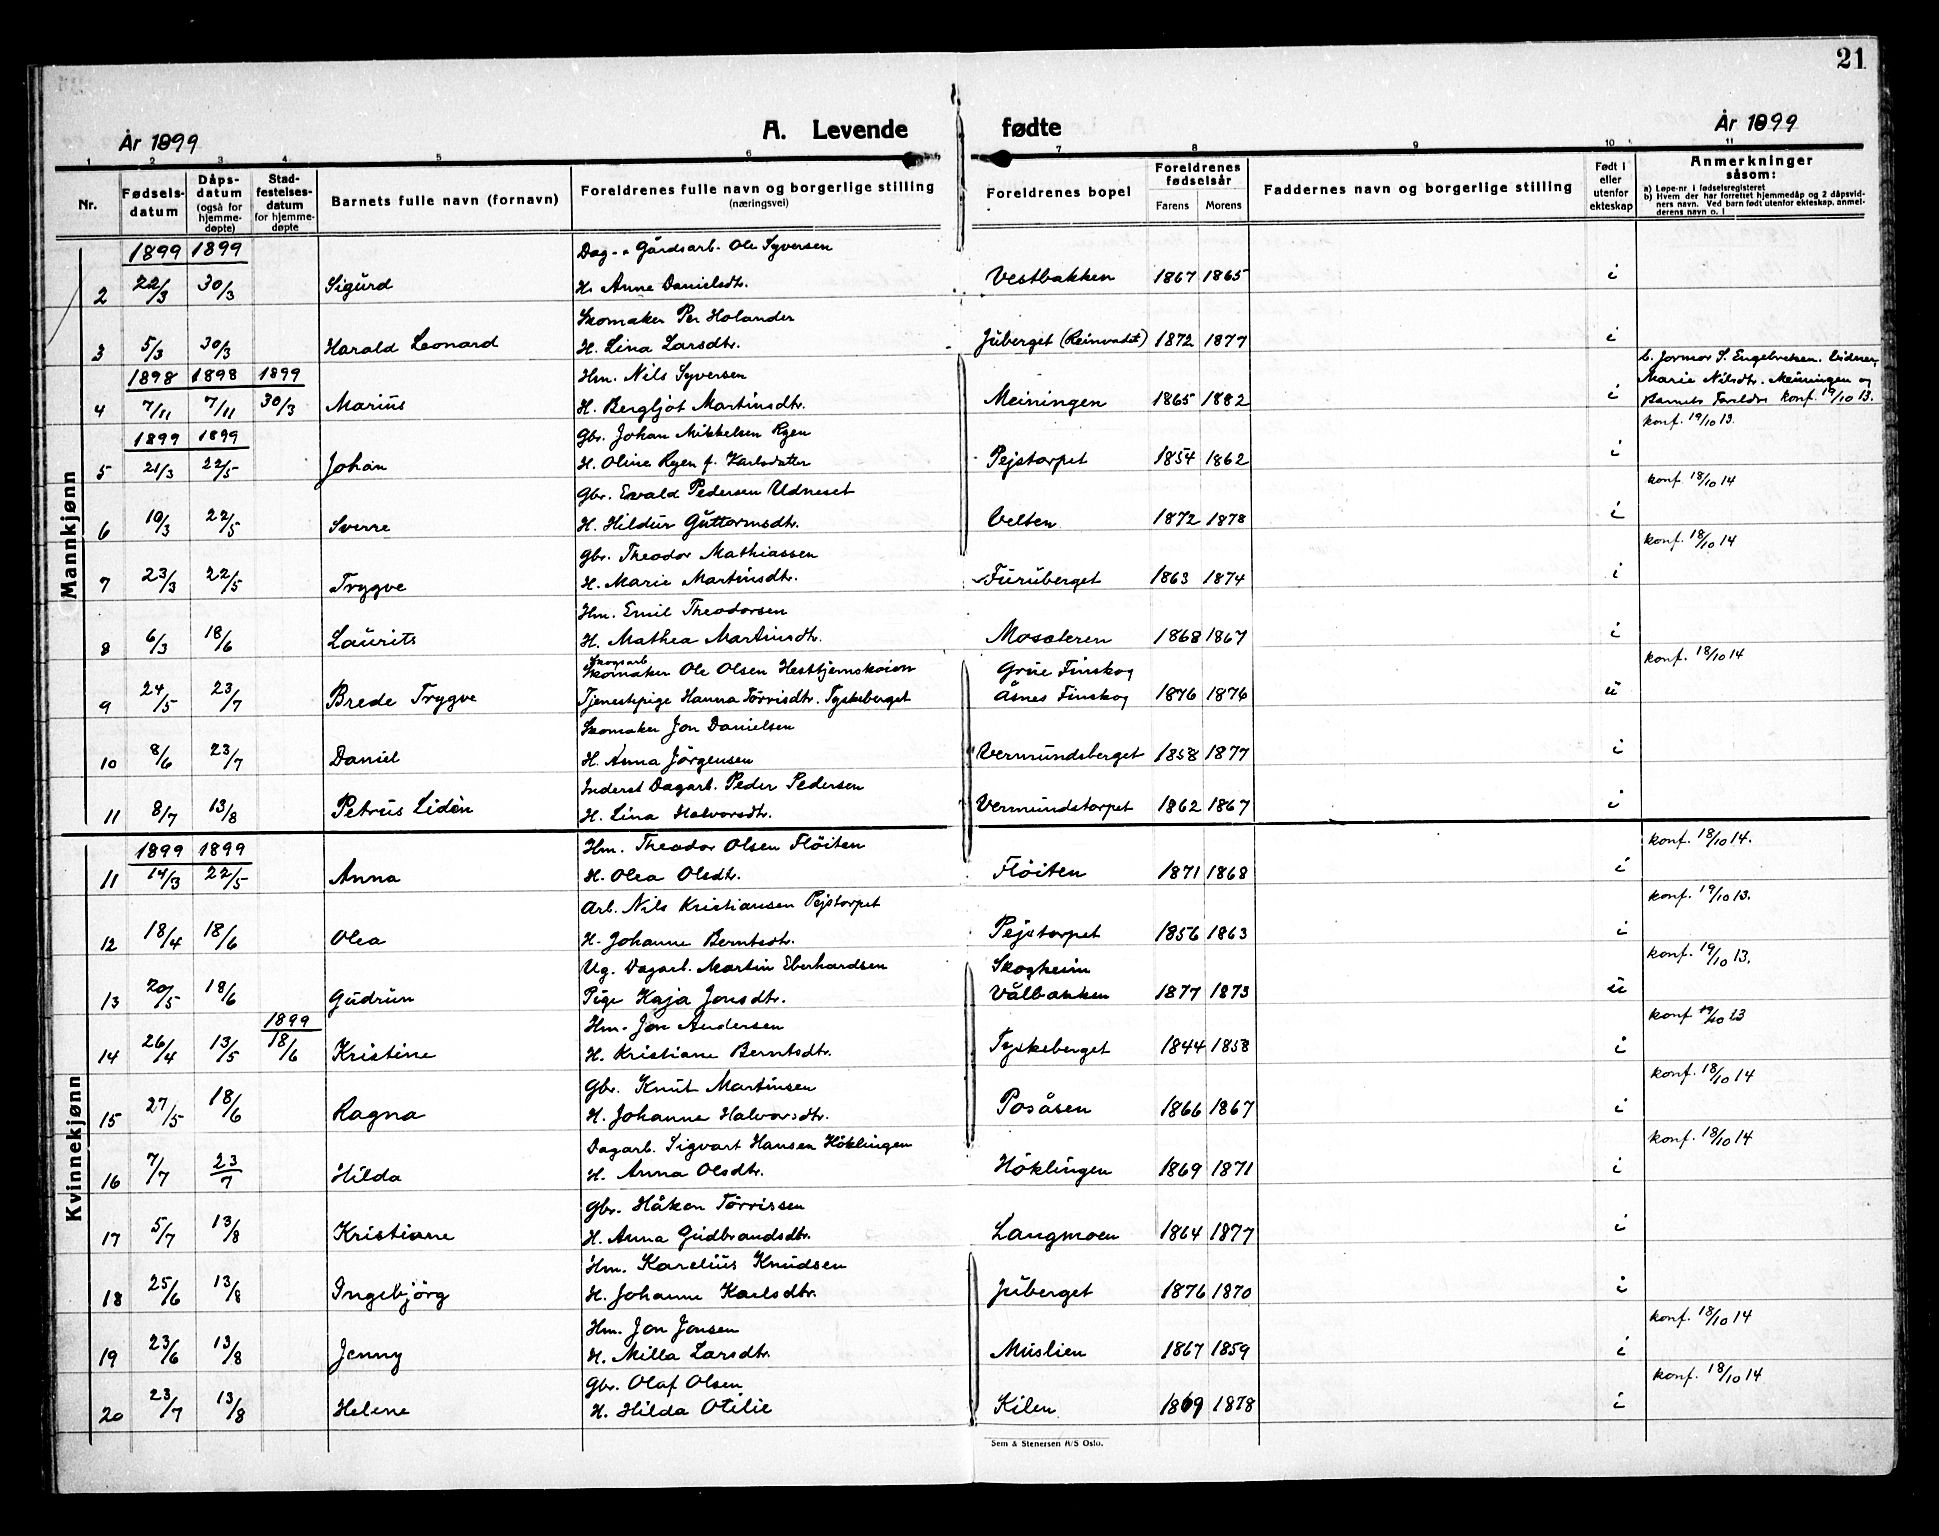 21
År 1899
A. Levende fødte
År 1899
1 2 3 4 5 6 7 8 9 10 11
Nr.
Fødselsdatum
Dåpsdatum (også for hjemmedøpte)
Stadfestelsesdatum for hjemmedøpte
Barnets fulle navn (fornavn)
Foreldrenes fulle navn og borgerlige stilling
(næringsvei)
Foreldrenes bopel
Foreldrenes fødselsår
Farens Morens
Faddernes navn og borgerlig stilling
Født i eller utenfor ekteskap
Anmerkninger
såsom:
a) Løpe-nr i fødselsregisteret
b) Hvem der har forrettet hjemmedåp og 2 dåpsvidners navn. Ved barn født utenfor ekteskap, anmelderens navn o. l
Mannkjønn
1899 1899 Dag- o Gårdsarb. Ole Syversen
2 22/3 30/3 Sigurd H. Anne Danielsdtr. Vestbakken 1867 1865 i
Skomaker Per Holander
3 5/3 30/3 Harald Leonard H. Lina Larsdtr. Juberget (Reinvadet) 1872 1877 i
1898 1898 1899 Hm. Nils Syversen b. Jormor S. Engebretsen. Vidner,
Marie Nilsdtr. Meiningen og
4 7/11 7/11 30/3 Marius H. Bergljot Martinsdtr. Meiningen 1865 1882 i Barnets Foreldre konf. 19/10 13.
1899 1899 Gbr. Johan Mikkelsen Ryen konf. 19/10 13.
5 21/3 22/5 Johan H. Oline Ryen f. Karlsdatter Pejstorpet 1854 1862 i
Gbr. Evald Pedersen Udneset konf. 18/10 14
6 10/3 22/5 Sverre H. Hildur Guttormsdtr. Velten 1872 1878 i
Gbr. Theodor Mathiassen konf. 18/10 14
7 23/3 22/5 Trygve H. Marie Martinsdtr. Furuberget 1863 1874 i
Hm. Emil Theodorsen
8 6/3 18/6 Laurits H. Mathea Martinsdtr. Mosæteren 1868 1867 i
Skogsarb
Skomaker Ole Olsen Hesttjernskoien Grue Finskog konf. 18/10 14
9 24/5 23/7 Brede Trygve Tjenestepige Hanna Törrisdtr. Tyskeberget Åsnes Finskog 1876 1876 u
Skomaker Jon Danielsen
10 8/6 23/7 Daniel H. Anna Jörgensen Vermundsberget 1858 1877 i
Inderst Dagarb. Peder Pedersen
11 8/7 13/8 Petrus Lidin H. Lina Halvorsdtr. Vermundstorpet 1862 1867 i
Kvinnekjønn
1899 1899 Hm. Theodor Olsen Flöiten konf. 18/10 14.
11 14/3 22/5 Anna H. Olea Olsdtr. Flöiten 1871 1868 i
Arb. Nils Kristiansen Pejstorpet konf. 19/10 13.
12 18/4 18/6 Olea H. Johanne Berntsdtr. Pejstorpet 1856 1863 i
Ug. Dagarb. Martin Eberhardsen Skogheim konf. 19/10 13.
13 20/5 18/6 Gudrun Pige Kaja Jonsdtr. Vålbakken 1877 1873 u
1899 Hm. Jon Andersen konf 19/10 13
14 26/4 13/5 18/6 Kristine H. Kristiane Berntsdtr. Tyskeberget 1844 1858 i
Gbr. Knut Martinsen konf. 18/10 14
15 27/5 18/6 Ragna H. Johanne Halvorsdtr. Posåsen 1866 1867 i
Dagarb. Sigvart Hansen Höklingen konf. 18/10 14
16 7/7 23/7 Hilda H. Anna Olsdtr. Höklingen 1869 1871 i
Gbr. Håkon Törrissen
17 5/7 13/8 Kristiane H. Anna Gudbrandsdtr. Langmoen 1864 1877 i
Hm. Karelius Knudsen
18 25/6 13/8 Ingebjörg H. Johanne Karlsdtr. Juberget 1876 1870 i
Hm. Jon Jonsen konf. 18/10 14
19 23/6 13/8 Jenny H. Milla Larsdtr. Muslien 1867 1859 i
Gbr. Olaf Olsen konf. 18/10 14
20 23/7 13/8 Helene H. Hilda Otilie Kilen 1869 1878 i
Sem & Stenersen A/S Oslo.